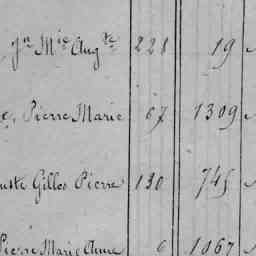 Jn Mie Augte 228 19
Pierre Marie 67 1309
Gilles Pierre 130 745
Pierre Marie Anne 6 1067